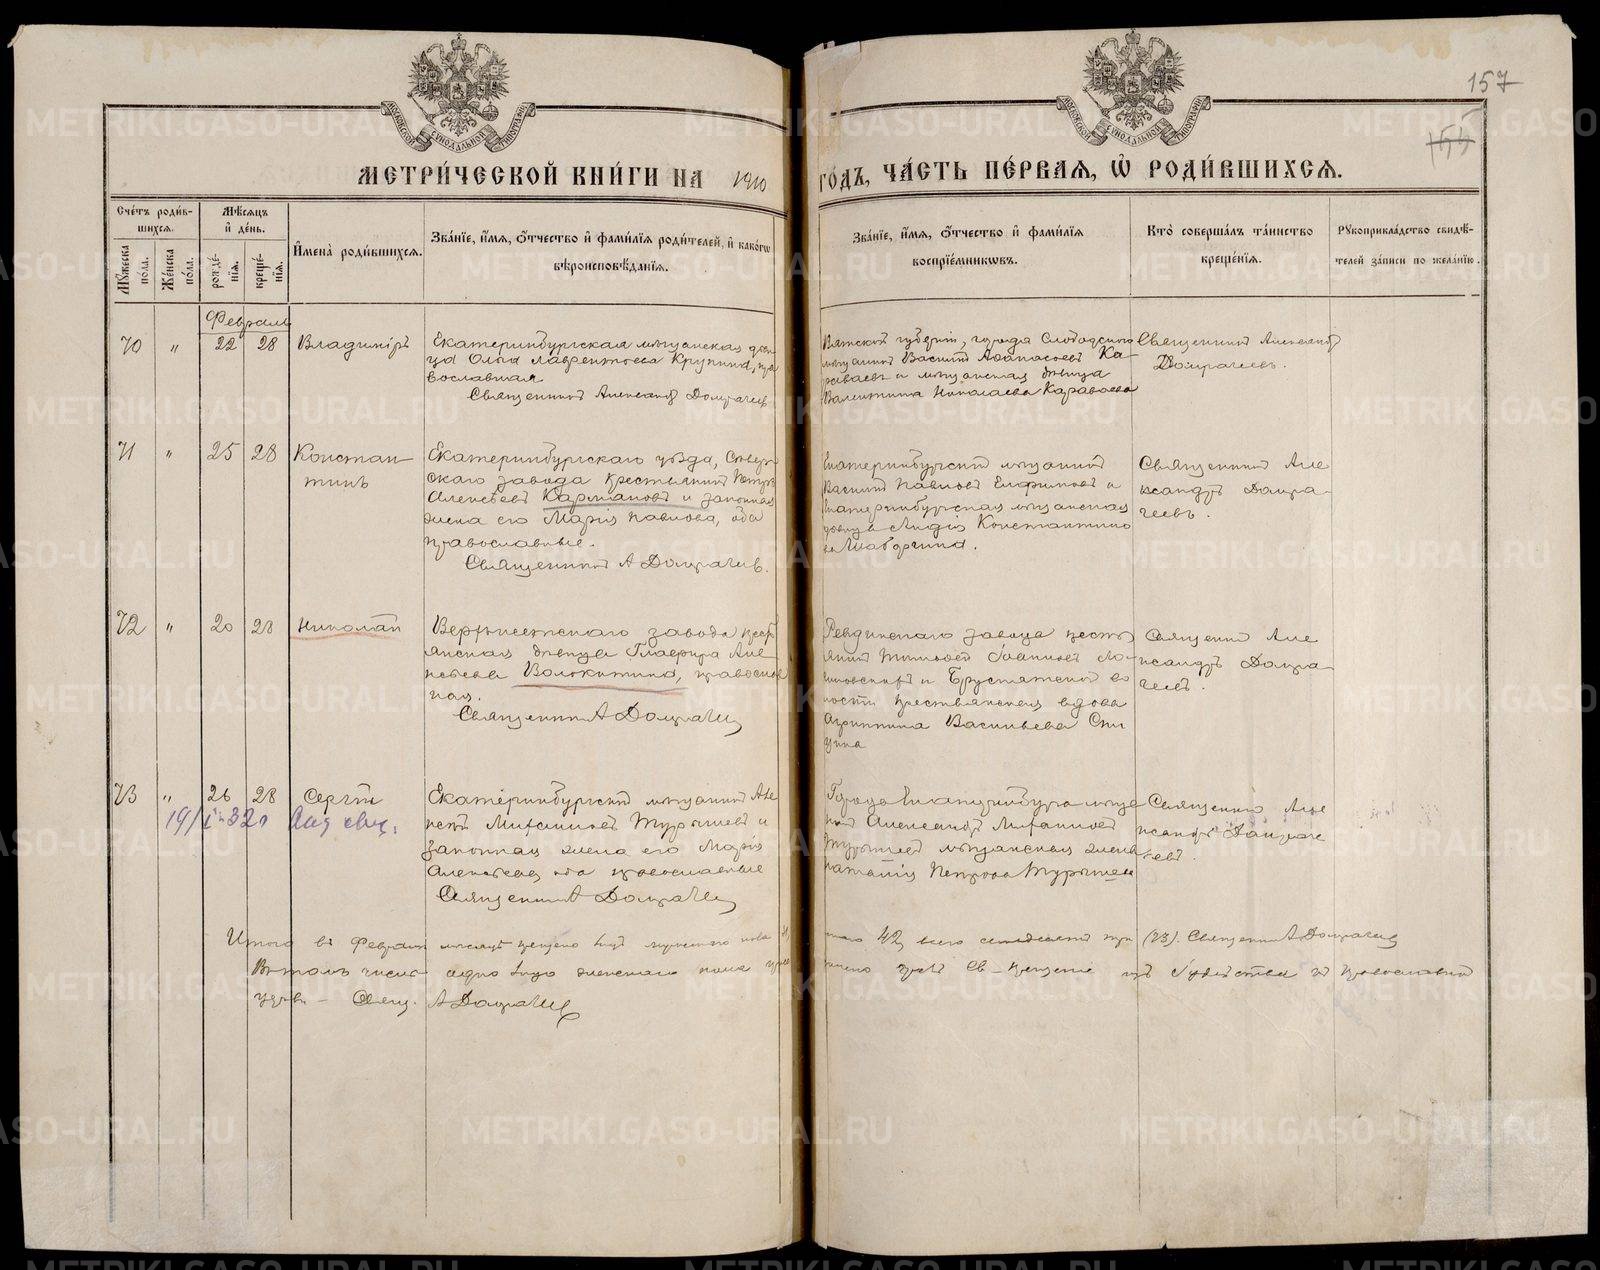 157
155
МОСКОВСКОЙ СИНОДАЛЬНОЙ ТИПОГРАФІИ
МОСКОВСКОЙ СИНОДАЛЬНОЙ ТИПОГРАФІИ
МЕТРИ́ЧЕСКОЙ КНИ́ГИ НА 1910 ГО́ДЪ, ЧА́СТЬ ПЕ́РВАѦ, Ѽ РОДИ́ВШИХСѦ.
Сче́тъ роди́в-
шихсѧ.
Мꙋ́жеска по́ла.
Же́нска по́ла.
Мѣ́сѧцъ
и҆ де́нь.
рожде́нїѧ.
креще́нїѧ.
И҆мена̀ роди́вшихсѧ.
Зва́нїе, и҆́мѧ, ѻ҆́тчество и҆ фами́лїѧ роди́телей, и҆ како́гѡ
вѣроисповѣ́данїѧ.
Зва́нїе, и҆́мѧ, ѻ҆́тчество и҆ фами́лїѧ
воспрїе́мникѡвъ.
Кто̀ соверша́лъ та́инство
креще́нїѧ.
Рꙋкоприкла́дство свидѣ́-
телей за́писи по жела́нїю.
Февраль
70 " 22 28 Владиміръ
Екатеринбургская мѣщанская дѣви-
ца Ольга Лаврентьева Крупина, пра
вославная
Священникъ Александръ Домрачевъ
Вятской губерніи, города Слободского
мѣщанинъ Василій Аѳанасьевъ Ка-
раваевъ и мѣщанская дѣвица
Валентина Николаева Караваева
Священникъ Александръ
Домрачевъ.
71 " 25 28 Констан-
тинъ
Екатеринбургскаго уѣзда,
скаго завода крестьянинъ Петръ
Алексѣевъ Кармановъ и законная
жена его Марія Павлова, оба
православные.
Священникъ А Домрачевъ.
Екатеринбургскій мѣщанинъ
Василій Павловъ Ефимовъ и
Екатеринбургская мѣщанская
Лидія Константино
ва
Священникъ Але
ксандръ Домра-
чевъ.
72 " 20 28 Николай
Верхъисетскаго завода крест
янская дѣвица Глафира Але-
ксѣева Волокитина, православ
ная.
Священникъ А Домрачевъ
Ревдинскаго завода крест
янинъ Тимоѳей Іоанновъ
и во
лости крестьянская вдова
Агриппина Васильева
Священникъ Але
ксандръ Домра-
чевъ.
73 " 26 28 Сергій
Екатеринбургскій мѣщанинъ Але
ксѣй Михаиловъ Турышевъ и
законная жена его Марія
Алексѣева, оба православные
Священникъ А Домрачевъ
Города Екатеринбурга мѣща
нинъ Александръ Михаиловъ
Турышевъ мѣщанская жена
Наталія Петрова Турышева
Священникъ Але
ксандръ Домрач
евъ.
Итого въ Февралѣ мѣсяцѣ крещено лицъ мужескаго пола
42, всего семьдесятъ три (73). Священникъ А Домрачевъ
Въ томъ числѣ одно лицо женскаго пола
чрезъ Св. крещеніе изъ Іудейства въ православной
церкв. – Свящ. А Домрачевъ
METRIKI.GASO-URAL.RU